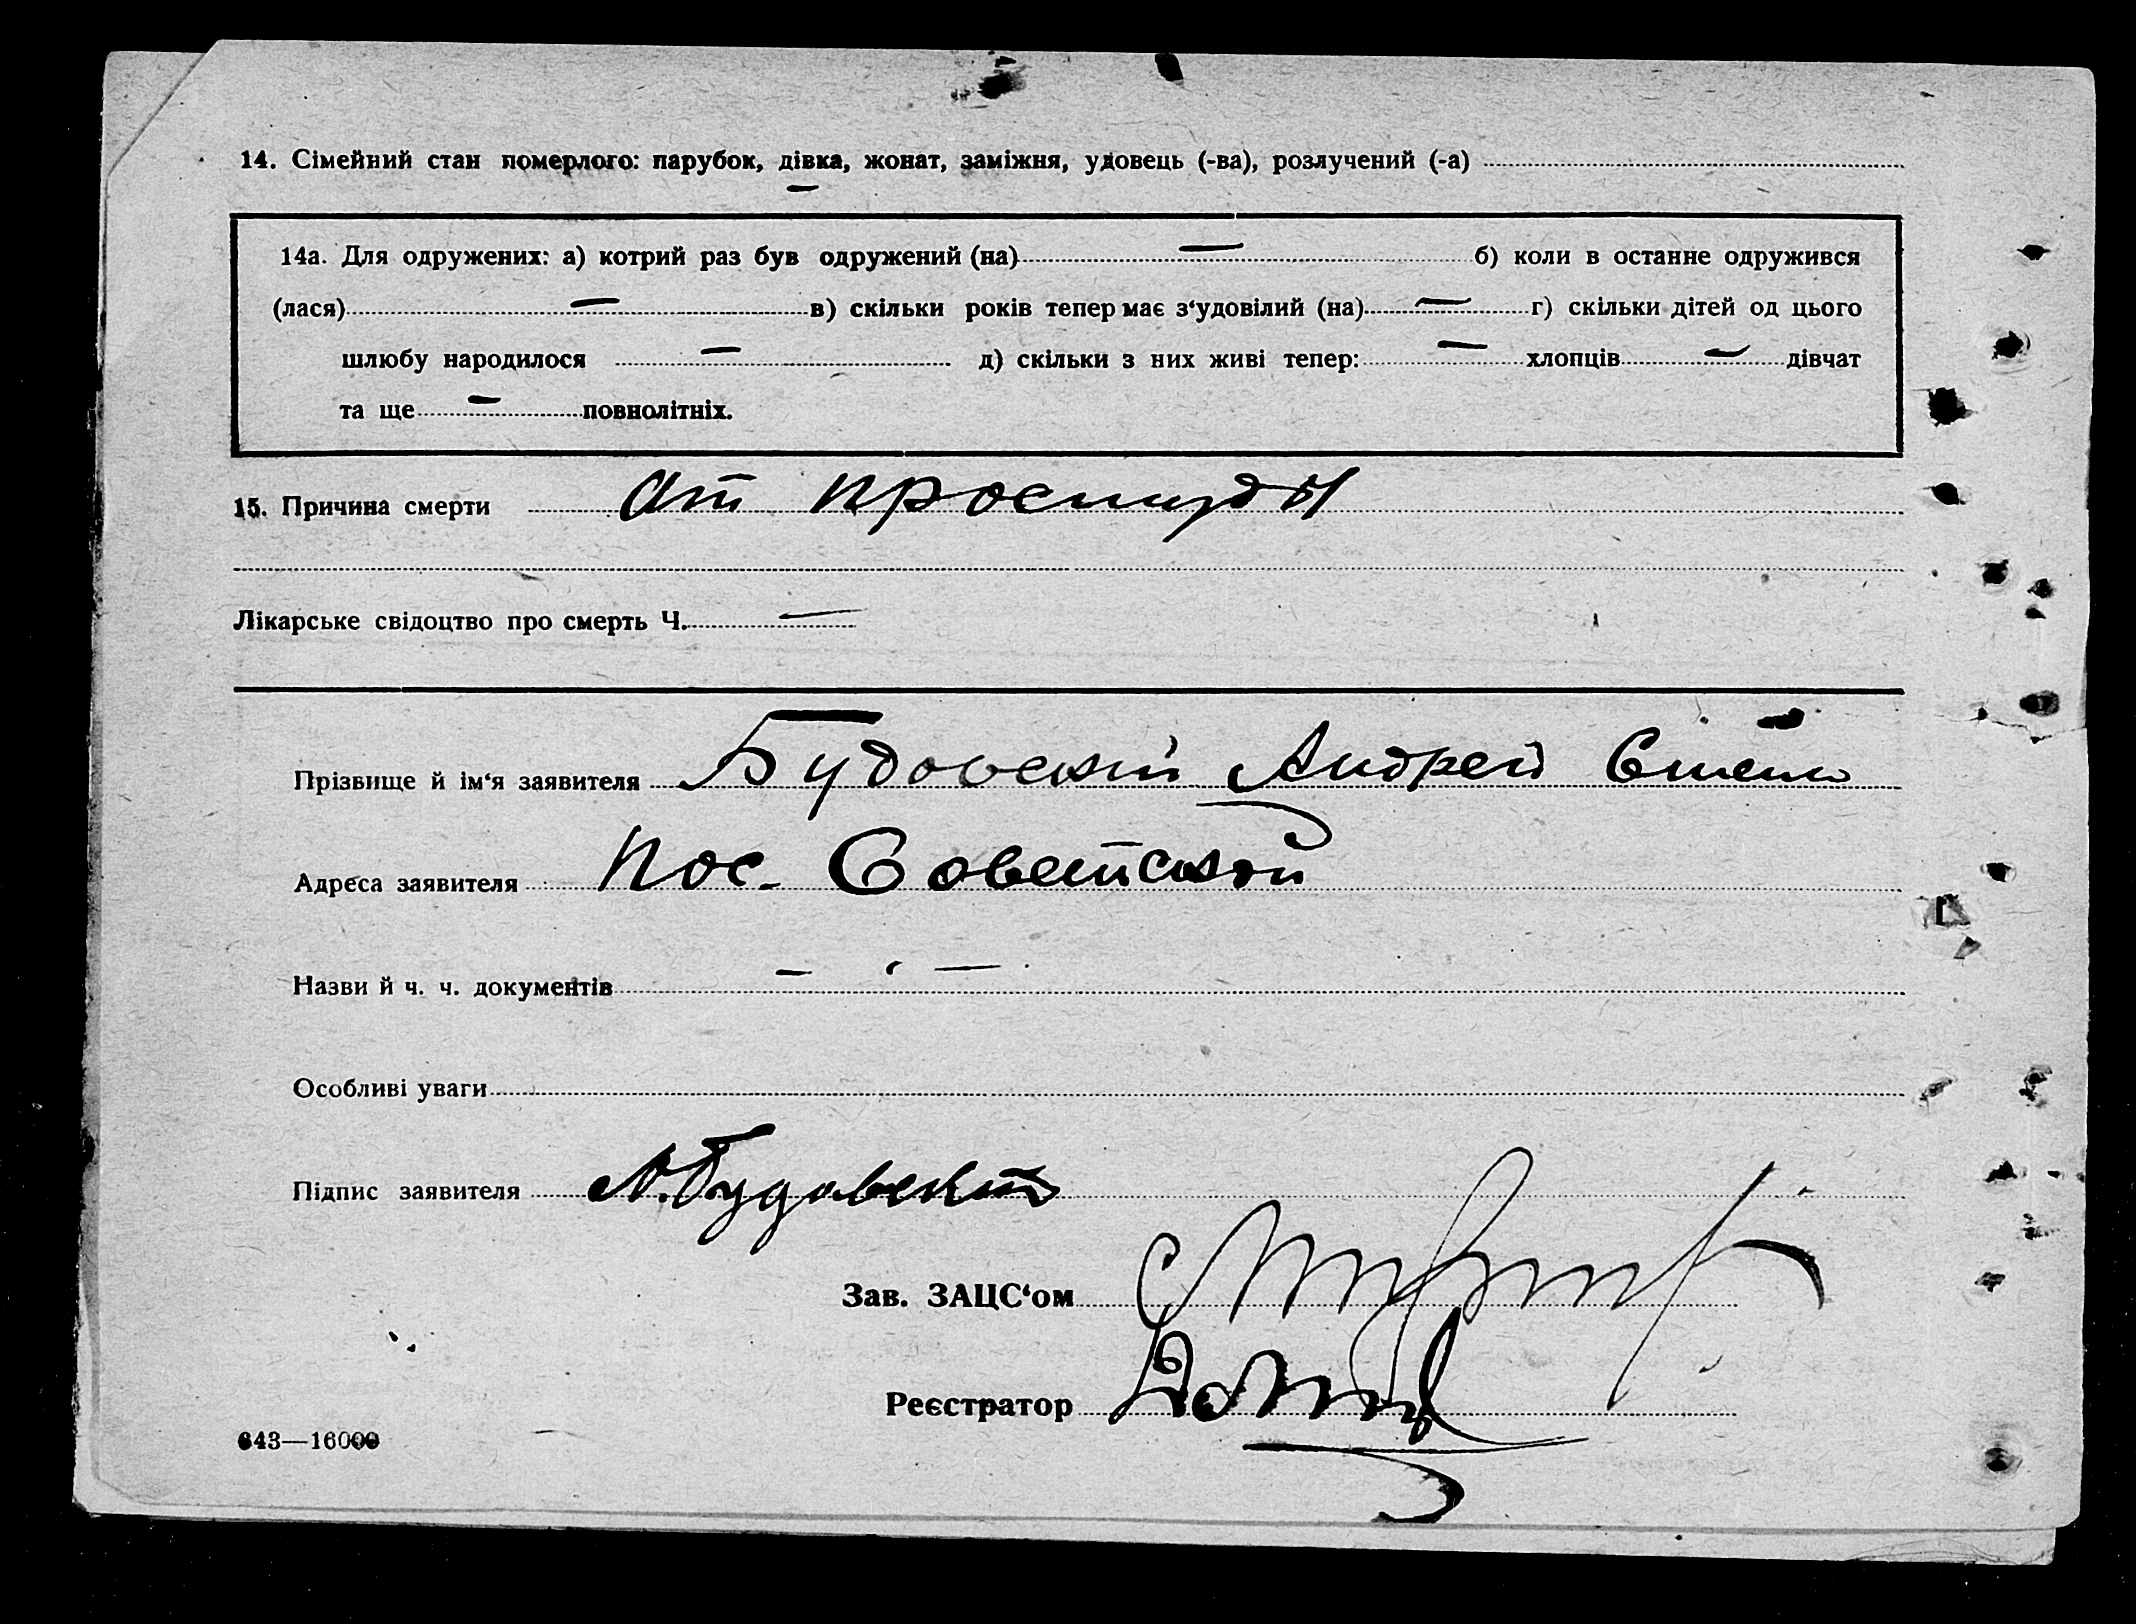 14. Сімейний стан померлого: парубок, дівка, жонат, заміжня, удовець (-ва), розлучений (-а)
14а. Для одружених: а) котрий раз був одружений (на) — б) коли в останне одружився
(лася) — в) скільки років тепер має з‘удовілий (на) — г) скільки дітей од цього
шлюбу народилося — д) скільки з них живі тепер: — хлопців — дівчат
та ще — повнолітніх.
15. Причина смерти От простуды
Лікарське свідоцтво про смерть Ч. —
Прізвище й ім‘я заявителя Будовский Андрей
Адреса заявителя Пос. Советской
Назви й ч. ч. документів — —
Особливі уваги
Підпис заявителя А. Будовский
Зав. ЗАЦС‘ом
Реєстратор
643—16000